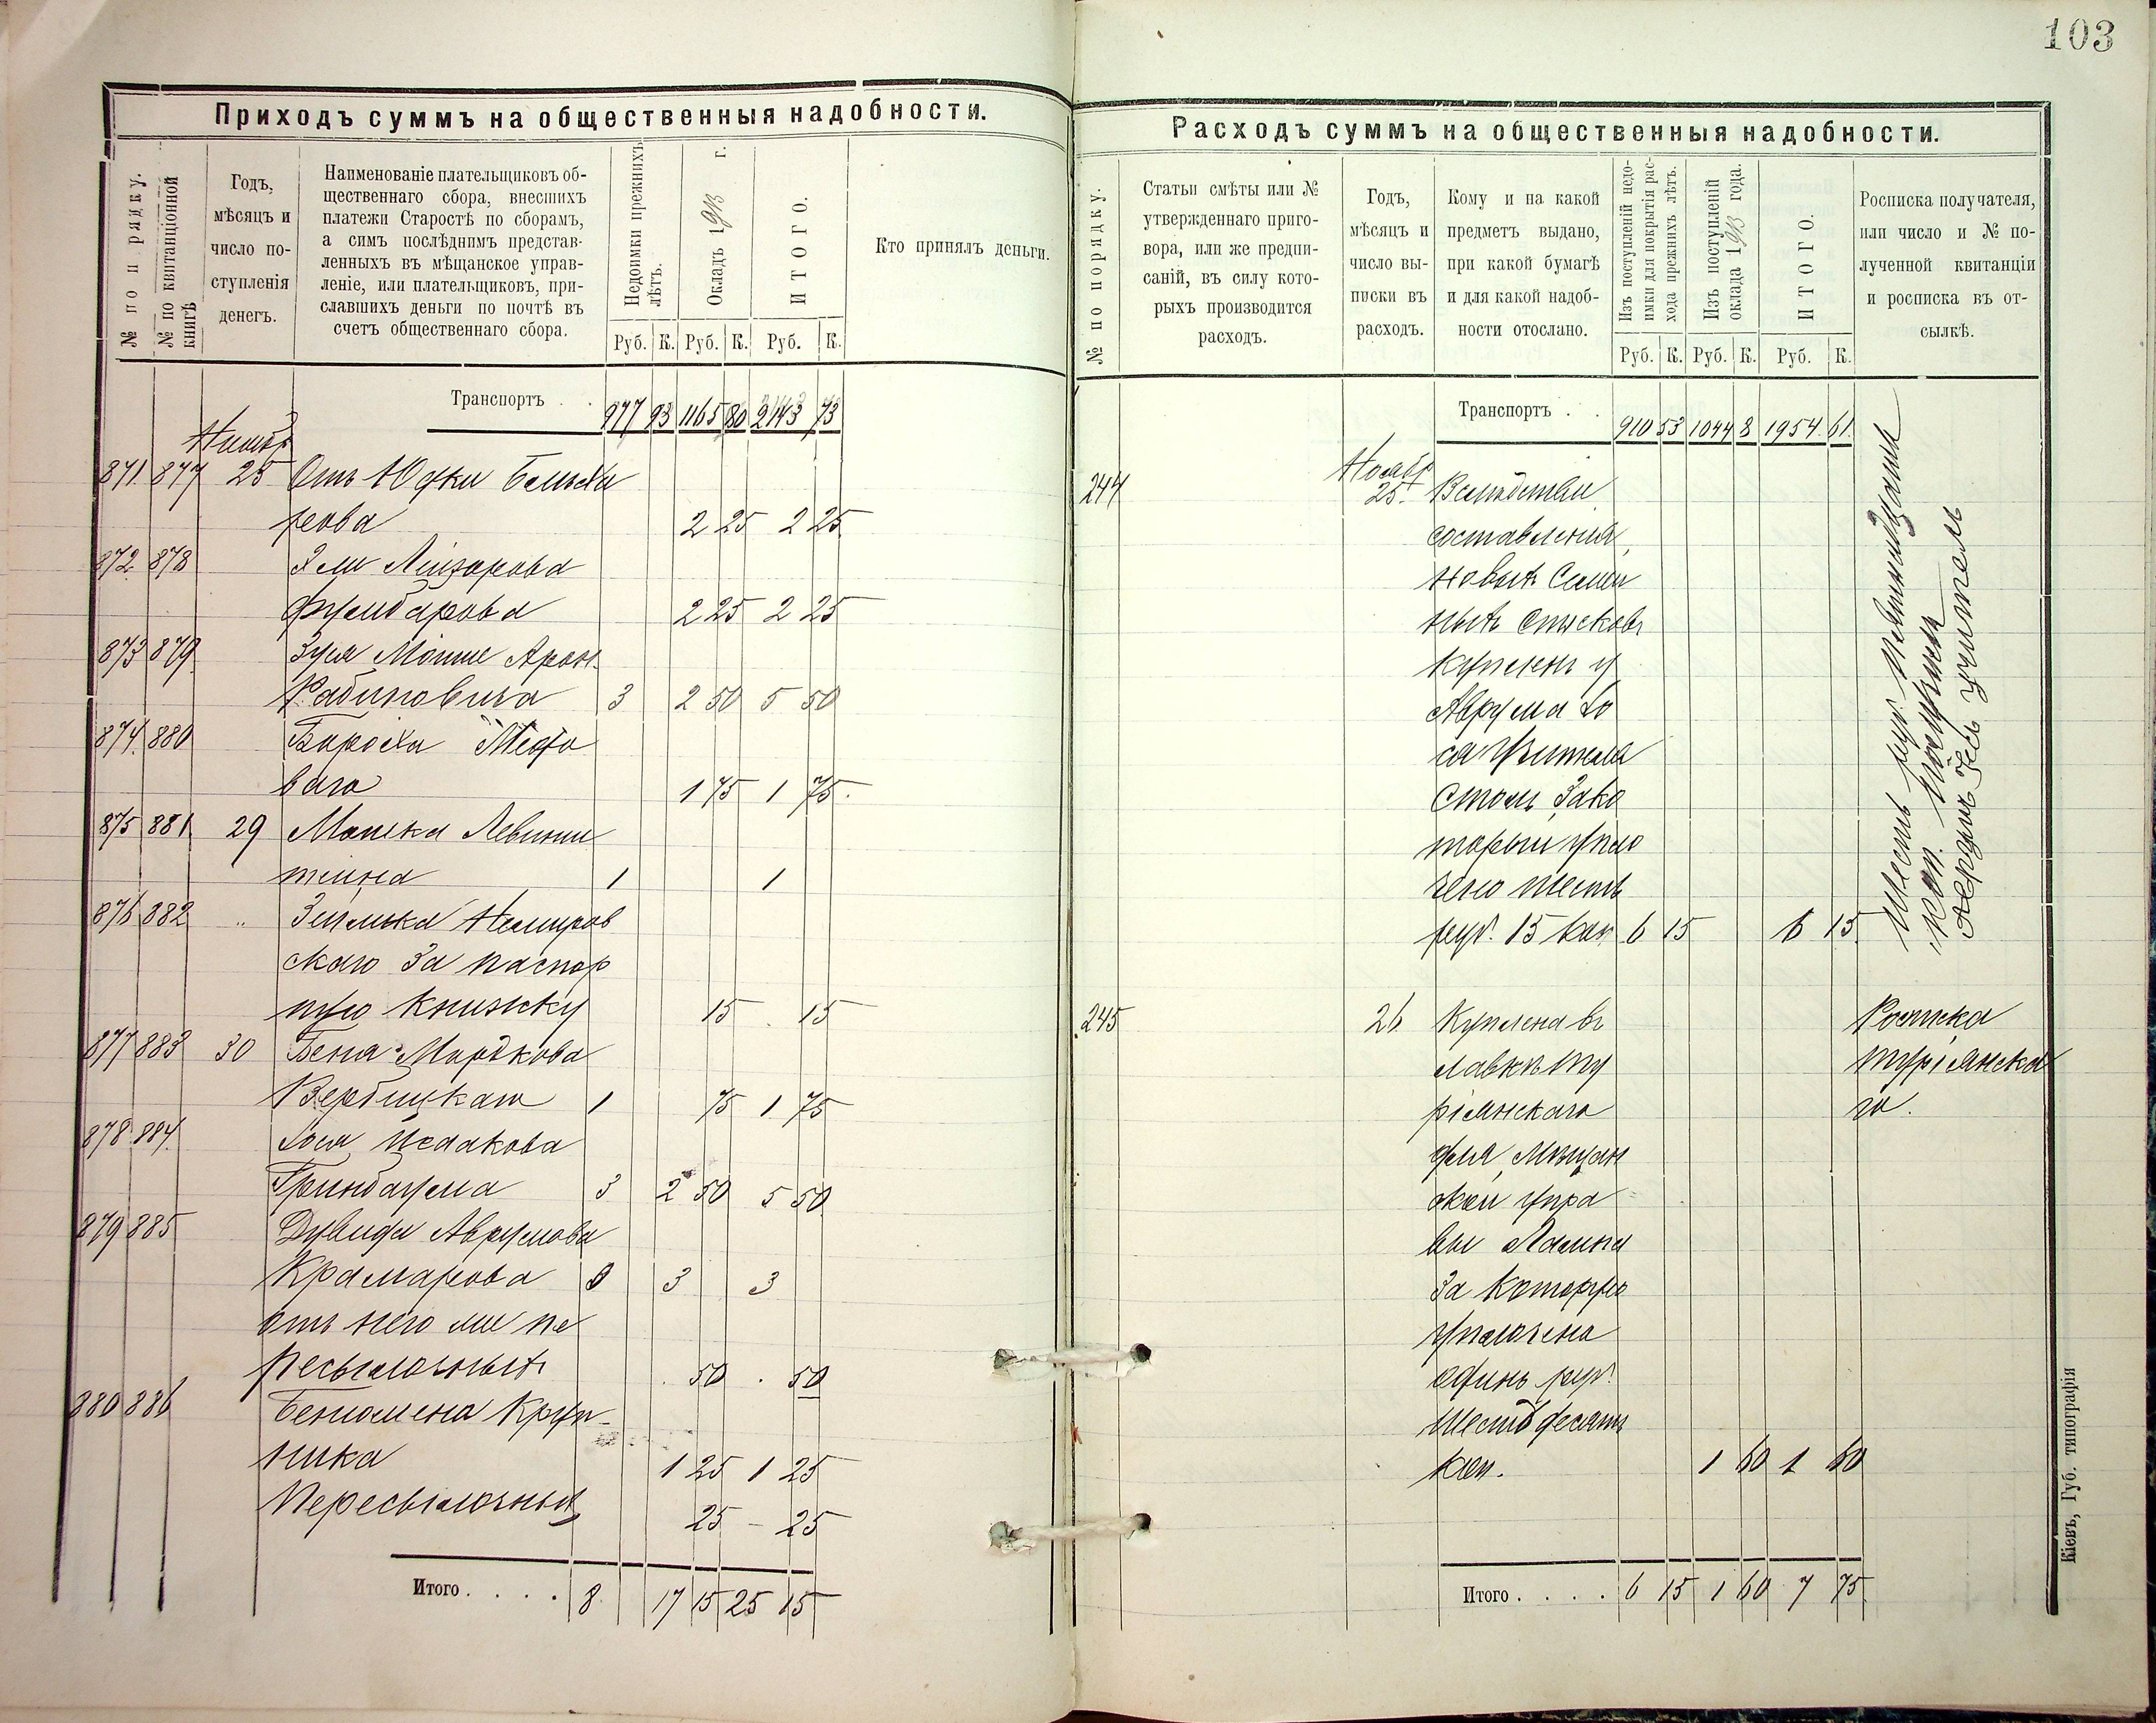 103
Приходъ суммъ на общественныя надобности.
№ по порядку.
№ по квитанціонной книгѣ
Годъ,
мѣсяцъ и
число по-
ступленія
денегъ.
Наименованіе плательщиковъ об-
щественнаго сбора, внесшихъ
платежи Старостѣ по сборамъ,
а симъ послѣднимъ представ-
ленныхъ въ мѣщанское управ-
леніе, или плательщиковъ, при-
славшихъ деньги по почтѣ въ
счетъ общественнаго сбора.
Недоимки прежнихъ
лѣтъ.
Окладъ 1913 г.
ИТОГО.
Кто принялъ деньги.
Руб. К. Руб. К. Руб. К.
Транспортъ . . 977 93 1165 80 2143 73
871 877 25 Отъ Юдки
2 25 2 25
872 878
2 25 2 25
873 879 Зуся Мошие Арон
Рабиновича 3 2 50 5 50
874 880
ваго 1 75 1 75
875 881 29 Мошка Левинш
тейна 1 1
876 882 " Зейлика Немиров
скаго За паспор
тую книжку 15 15
877 883 30 Беня Мордкова
Вербицкаго 1 75 1 75
878 884 Исаакова
Гринбаума 3 2 50 5 50
879 885 Дувида Аврумова
Крамарова 3 3
отъ него же пе
ресылочныхъ 50 50
880 886 Бениомена Круп-
ника 1 25 1 25
Пересылочныхъ 25 - 25
Итого . . . . 8 17 15 25 15
Расходъ суммъ на общественныя надобности.
№ по порядку.
Статьи смѣты или №
утвержденнаго приго-
вора, или же предпи-
саній, въ силу кото-
рыхъ производится
расходъ.
Годъ,
мѣсяцъ и
число вы-
писки въ
расходъ.
Кому и на какой
предметъ выдано,
при какой бумагѣ
и для какой надоб-
ности отослано.
Изъ поступленій недо-
имки для покрытія рас-
хода прежнихъ лѣтъ.
Изъ поступленій
оклада 1913 года.
ИТОГО.
Росписка получателя,
или число и № по-
лученной квитанціи
и росписка въ от-
сылкѣ.
Руб. К. Руб. К. Руб. К.
Транспортъ . . 910 53 1044 8 1954 61
Ноябр
244 25 Вслѣдствіи
составленія
новыхъ Семей
ныхъ Списковъ
купленъ у
Аврума Іо
ся Учителя
Столъ За ко
торый упла
чено шесть
руб. 15 коп 6 15 6 15
Шесть руб. пятнадцать
коп. получилъ
Аврумъ Іось учитель
245 26 Куплена въ
лавкѣ Ту
ріянскаго
для Мѣщан
ской упра
вы Лампа
За которую
уплочена
одинъ руб.
Шестьдесятъ
коп. 1 60 1 60
Росписка
Туріянска
го.
Итого . . . . 6 15 1 60 7 75
Кіевъ, Губ. типографія